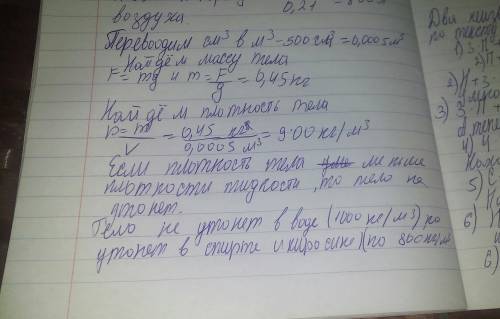 воздуха.
0,21
Переводим см³ в м³ - 500 см³ = 0,0005 м³
Найдём массу тела
F = mg и m = F/g = 0,45 кг
Найдём плотность тела
p = m/V = 0,45 кг/0,0005 м³ = 900 кг/м³
Если плотность тела меньше
плотности жидкости, то тело не
утонет.
Тело не утонет в воде (1000 кг/м³) но
утонет в спирте и керосине) (по 800 кг/м
Два
по тексту
1) 3
2) П
2) Н
3) 3
4) 4
5)
6)
6)